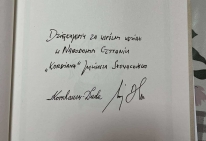 Dziękujemy za wspólny udział
w Narodowym Czytaniu
„Kordiana” Juliusza Słowackiego
Kornhauser-Duda